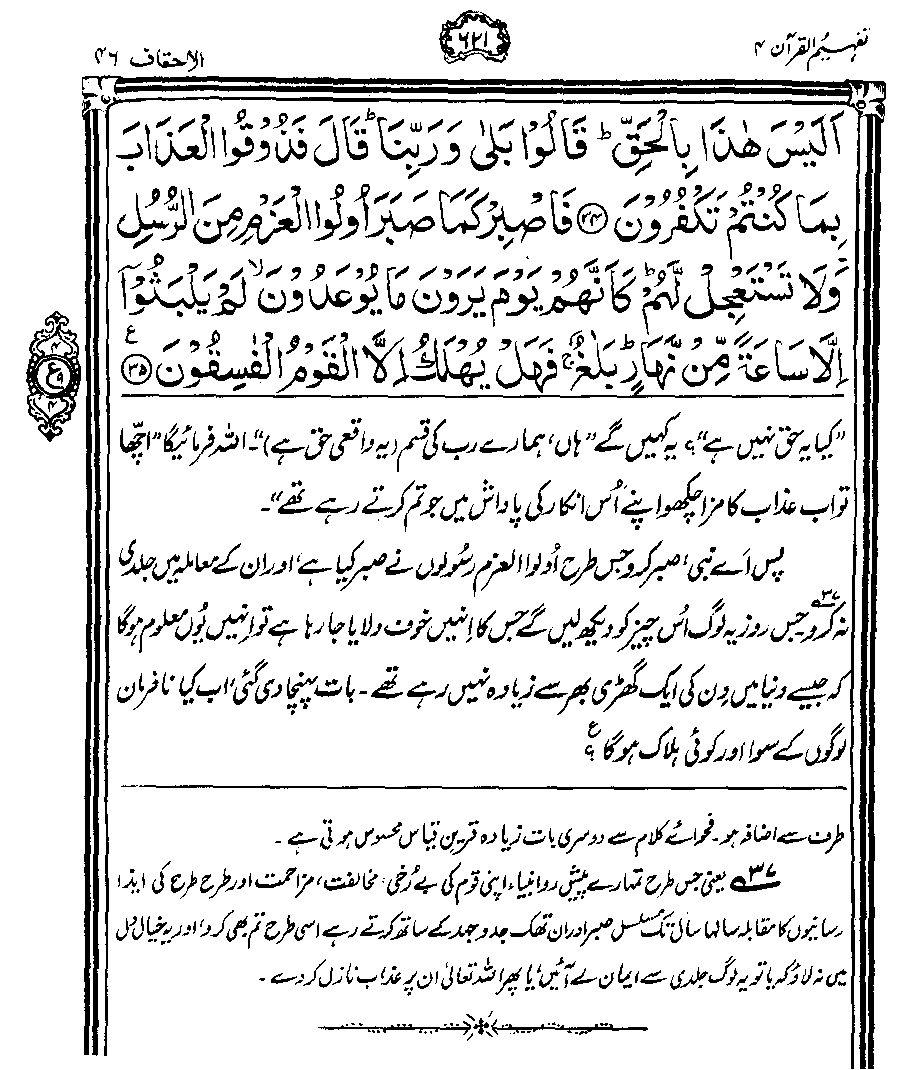 تفہیم القرآن ۴
۶۲۱
الاحقاف ۴۶
اَلَيْسَ هٰذَا بِالْحَقِّ ؕ قَالُوْا بَلٰى وَرَبِّنَا ؕ قَالَ فَذُوْقُوا الْعَذَابَ
بِمَا كُنْتُمْ تَكْفُرُوْنَ ﴿۳۴﴾ فَاصْبِرْ كَمَا صَبَرَ اُولُوا الْعَزْمِ مِنَ الرُّسُلِ
وَلَا تَسْتَعْجِلْ لَّهُمْ ؕ كَاَنَّهُمْ يَوْمَ يَرَوْنَ مَا يُوْعَدُوْنَ ۙ لَمْ يَلْبَثُوْۤا
اِلَّا سَاعَةً مِّنْ نَّهَارٍ ؕ بَلٰغٌ ۚ فَهَلْ يُهْلَكُ اِلَّا الْقَوْمُ الْفٰسِقُوْنَ ﴿۳۵﴾ ع
”کیا یہ حق نہیں ہے“؟ یہ کہیں گے ”ہاں، ہمارے رب کی قسم (یہ واقعی حق ہے)“۔ اللہ فرمائیگا ”اچھا
تو اب عذاب کا مزا چکھو اپنے اُس انکار کی پاداش میں جو تم کرتے رہے تھے“۔
پس اَے نبی، صبر کرو جس طرح اُولوا العزم رسُولوں نے صبر کیا ہے، اور ان کے معاملہ میں جلدی
نہ کرو۳۷۔ جس روز یہ لوگ اُس چیز کو دیکھ لیں گے جس کا اِنہیں خوف دلایا جا رہا ہے تو اِنہیں یُوں معلوم ہوگا
کہ جیسے دنیا میں دِن کی ایک گھڑی بھر سے زیادہ نہیں رہے تھے۔ بات پہنچا دی گئی، اب کیا نافرمان
لوگوں کے سوا اور کوئی ہلاک ہوگا؟ ع
طرف سے اضافہ ہو۔ فحوائے کلام سے دوسری بات زیادہ قرینِ قیاس محسوس ہوتی ہے۔
۳۷ یعنی جس طرح تمہارے پیش رو انبیاء اپنی قوم کی بے رُخی، مخالفت، مزاحمت اور طرح طرح کی ایذا
رسانیوں کا مقابلہ سالہا سال تک مسلسل صبر اور ان تھک جدوجہد کے ساتھ کرتے رہے اسی طرح تم بھی کرو، اور یہ خیال دل
میں نہ لاؤ کہ یا تو یہ لوگ جلدی سے ایمان لے آئیں، یا پھر اللہ تعالیٰ ان پر عذاب نازل کر دے۔